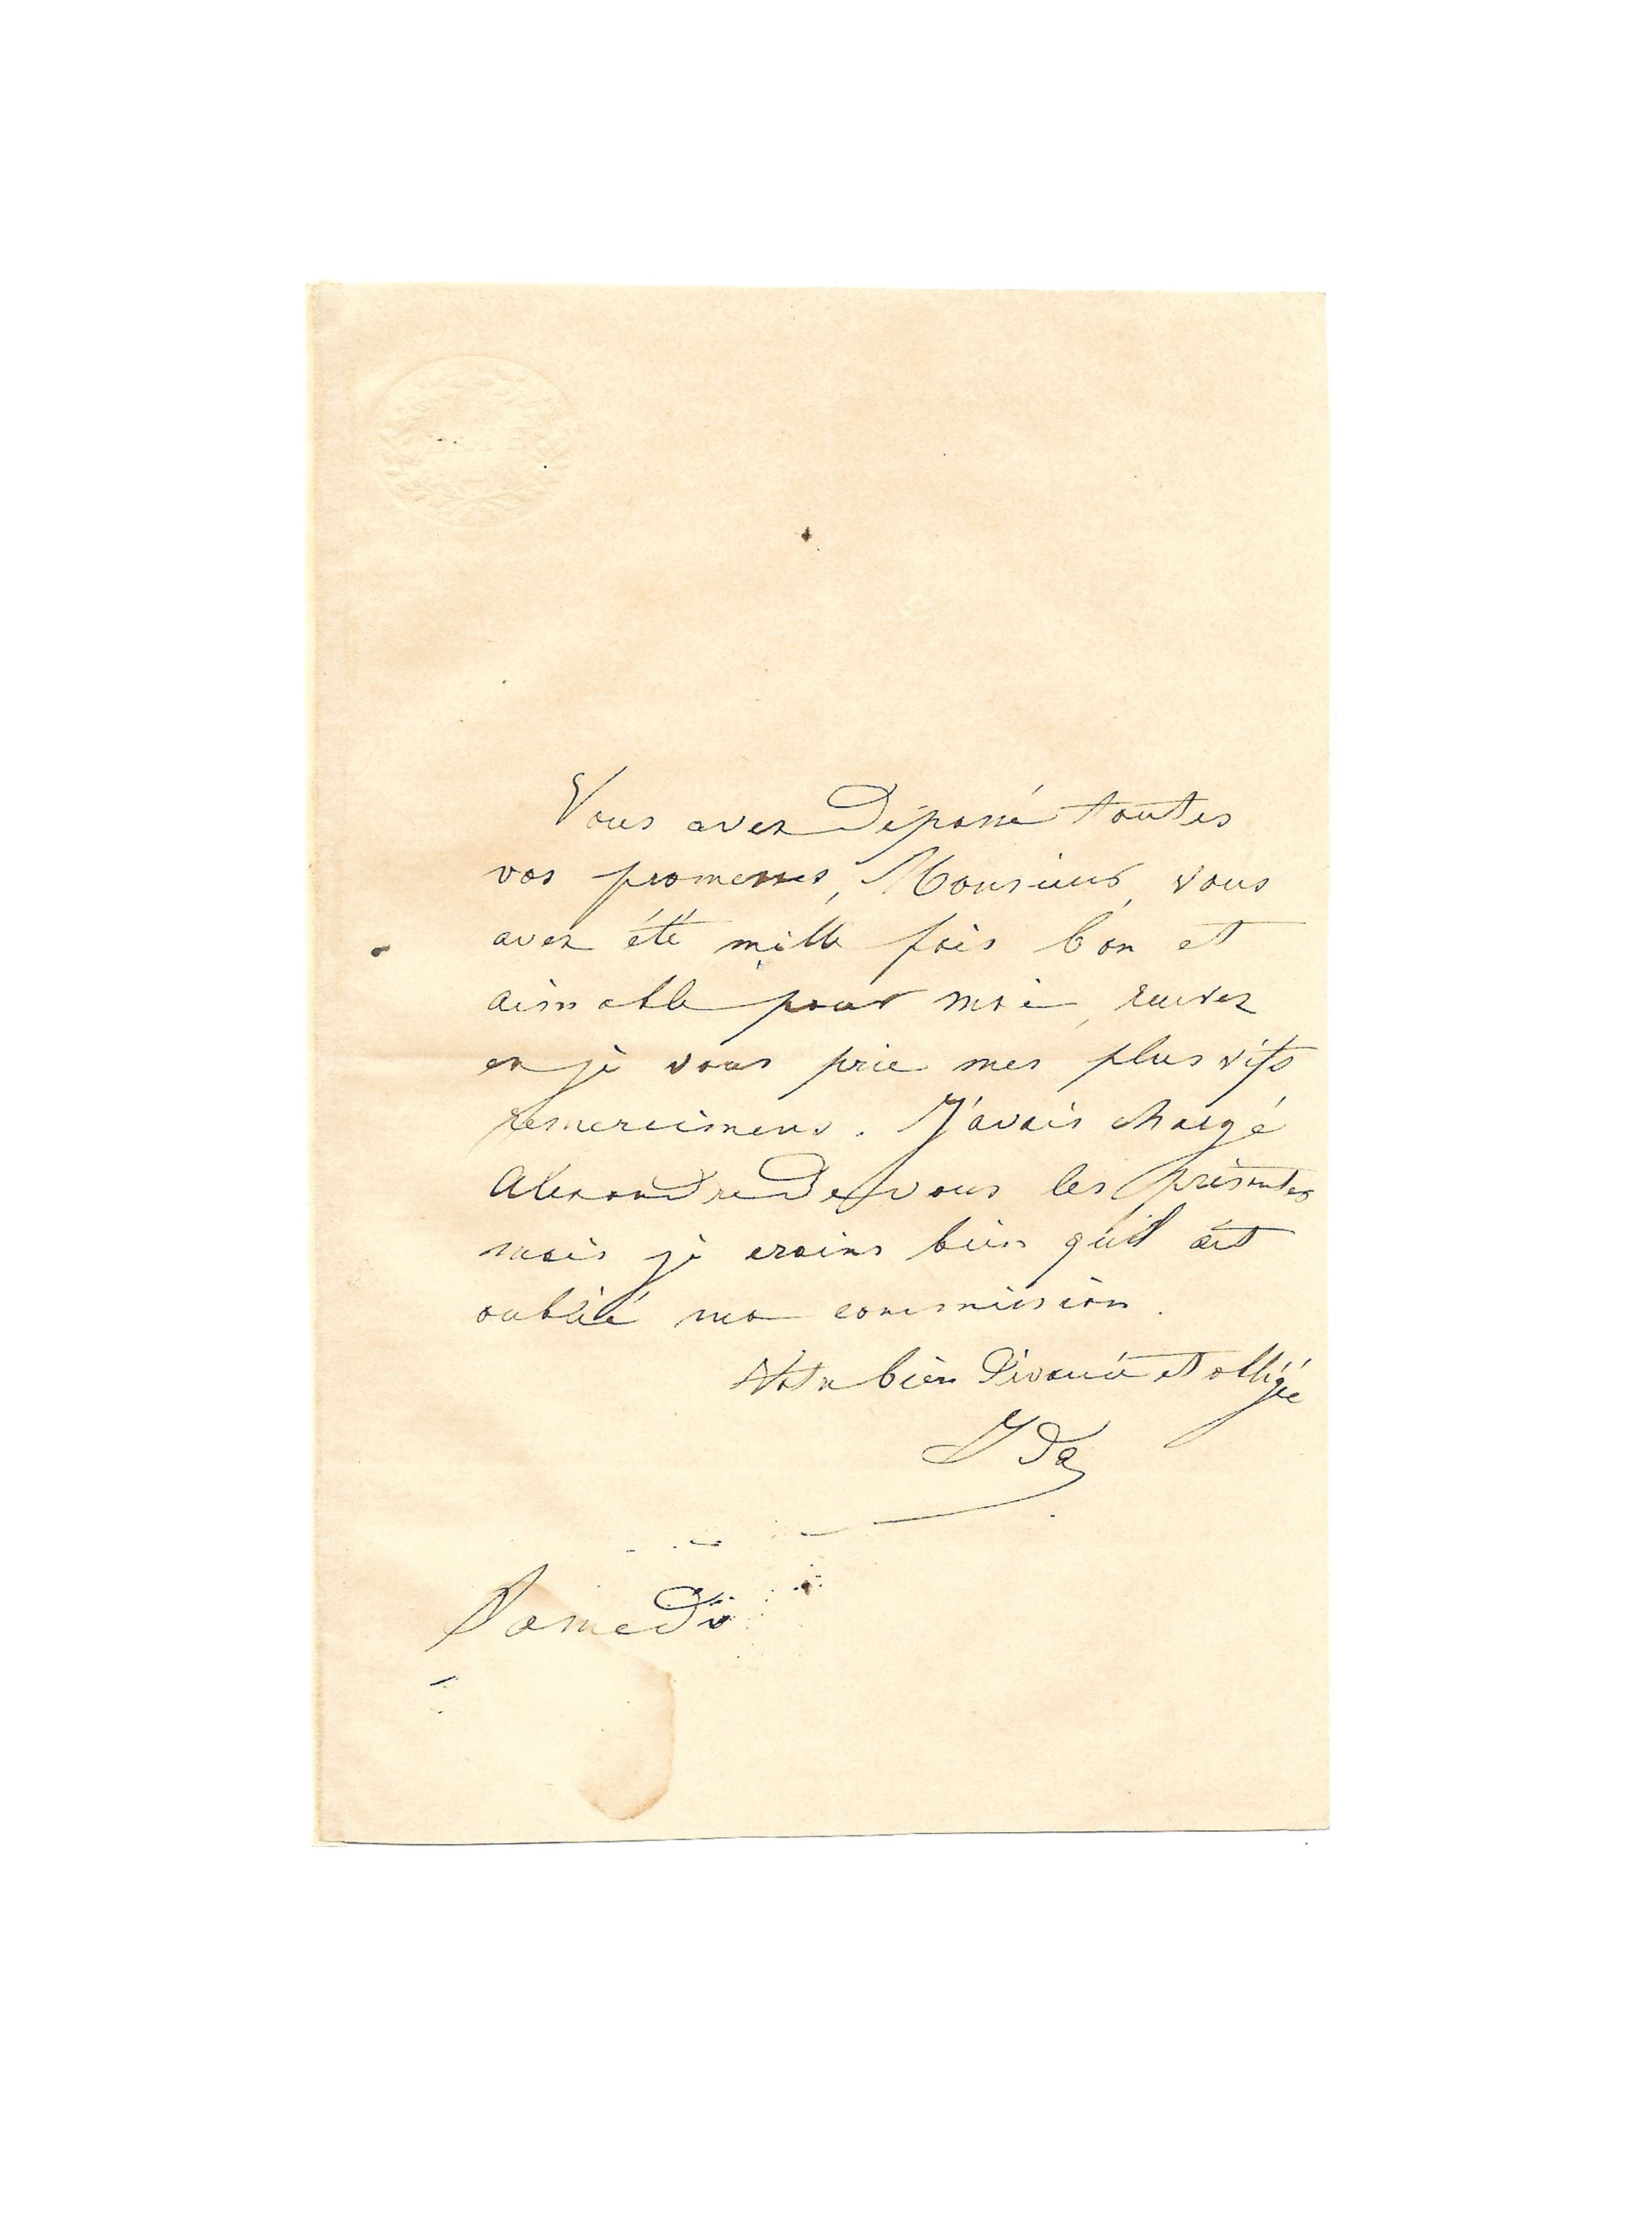 Vous avez dépassé toutes
vos promesses, Monsieur, vous
avez été mille fois bon et
aimable pour moi, recevez
en je vous prie mes plus vifs
remerciments. J'avais chargé
Alexandre de vous les présenter
mais je crains bien qu'il ait
oublié ma commission.
Votre bien dévouée et obligée
Ida
Samedi